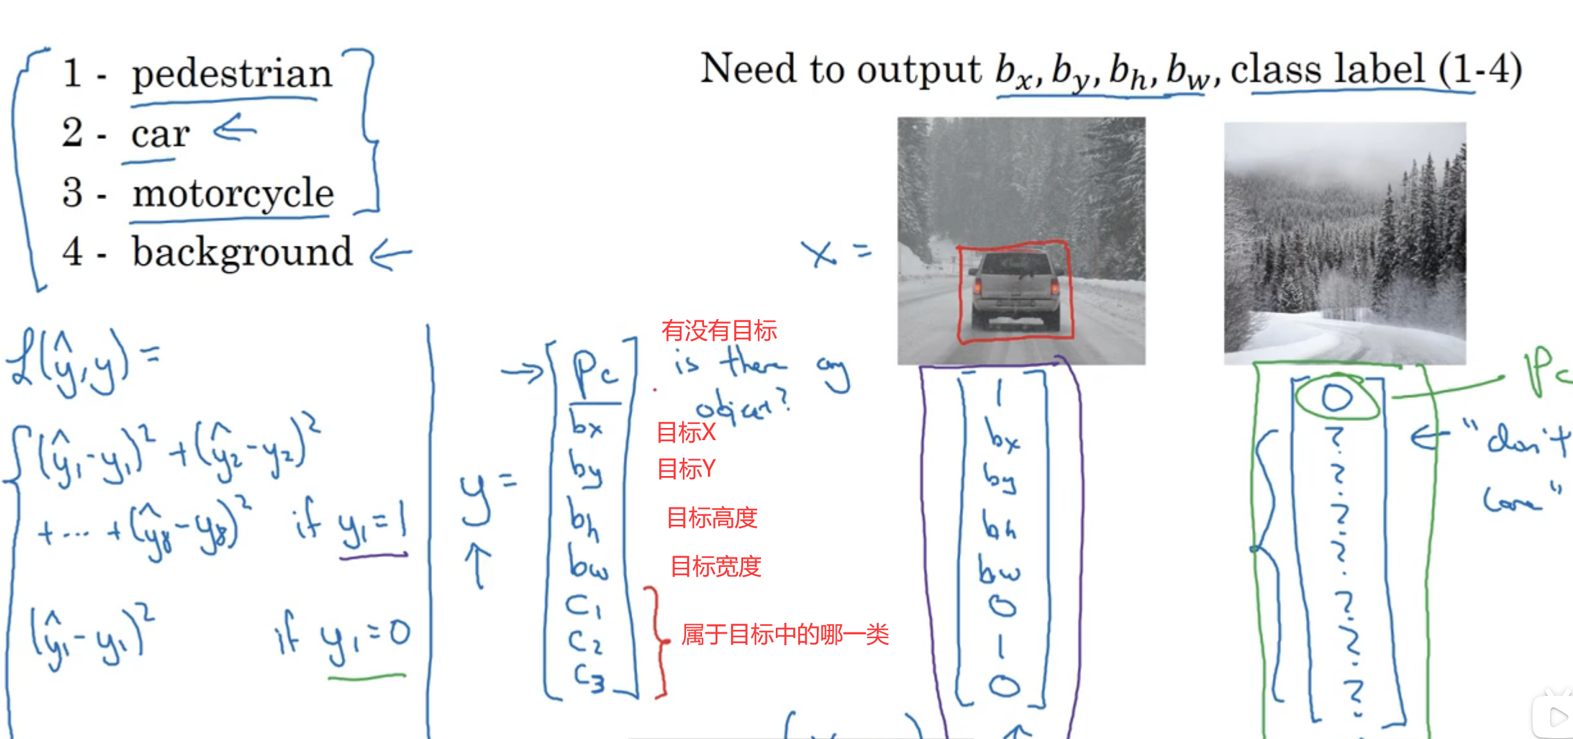 1 - pedestrian
2 - car
3 - motorcycle
4 - background
Need to output bx, by, bh, bw, class label (1-4)
x =
ℒ(ŷ,y) =
(ŷ₁-y₁)² + (ŷ₂-y₂)²
+ ... + (ŷ₈-y₈)² if y₁=1
(ŷ₁-y₁)² if y₁=0
y =
Pc
bx
by
bh
bw
C₁
C₂
C₃
有没有目标
is there any
object?
目标X
目标Y
目标高度
目标宽度
属于目标中的哪一类
1
bx
by
bh
bw
0
1
0
0
?
?
?
?
?
?
?
Pc
"don't
care"